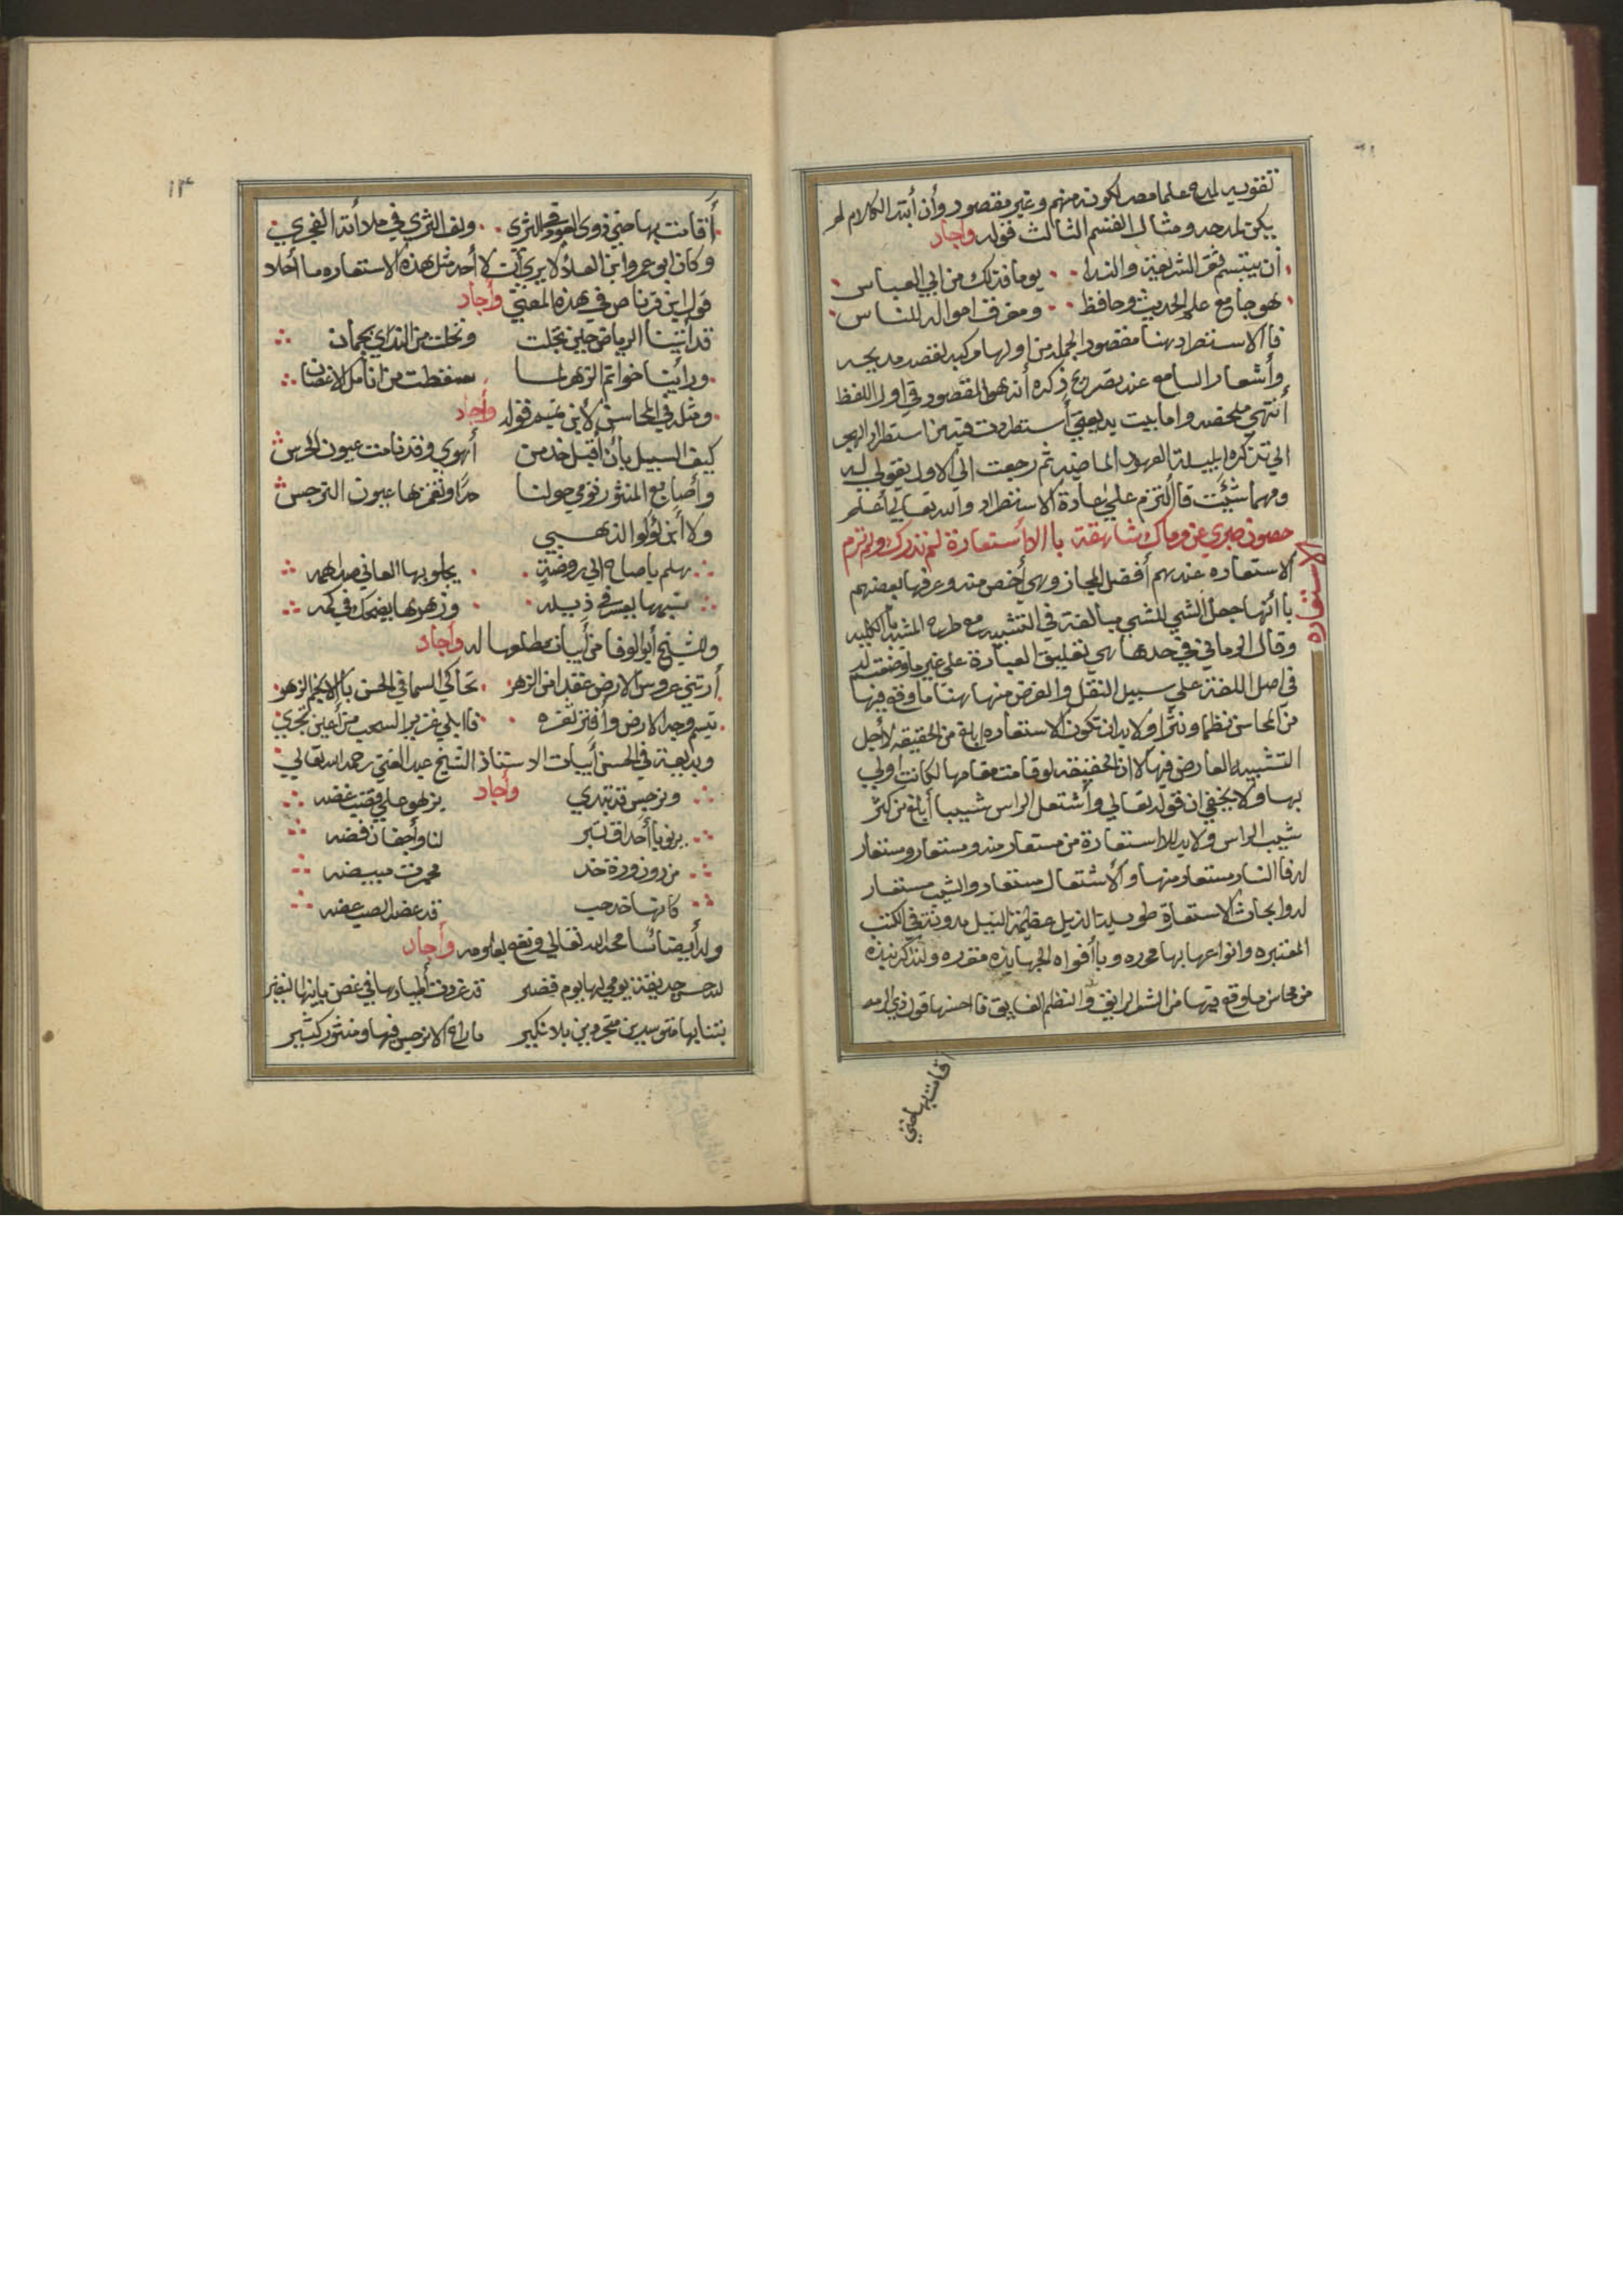 تقويه لمدح علما مصر لكونه منهم وغير مقصود وأن أبتدا الكلام لم
يكن لمدحه ومثال القسم الثالث قوله وأجاد
أن يبتسم ثغر الشريعة والندا يوما فذلك من ابي العباس
لهو جامع علم الحديث وحافظ ومفرق امواله للناس
فاالاستطراد هنا مقصود الجمله من اولها مركبه لقصد مديحه
وأشعار السامع عند تصريح ذكره أنه هو المقصود في اول اللفظ
أنتهى ملخصه واما بيت بديعيتي أستطردت فيه من استطراد الهجر
الي تذكره لليلة العهود الماضيه ثم رجعت الي الاول بقولي ليه
ومهما شئت فاالتزم علي عادة الاستطراد والله تعالي أعلم
حصون صبري عن مرماك شاهقة باالاأستعارة لم تدرك ولم ترم
الاستعاره
ألاستعاره عندهم أفضل المجاز وهي أخص منه وعرفها بعضهم
باأنها جعل الشي للشي مبالغة في التشبيه مع طرح المشبه باالكليه
وقال الرماني في حدها هي تعليق العبارة علي غير ما وضعت له
في اصل اللغة علي سبيل النقل والغرض منها هنا ما وقع فيها
من المحاسن نظما ونثرا ولا بد ان تكون الاستعاره ابلغ من الحقيقه لأجل
التشبيه العارض فيها لان الحقيقه لو قامت مقامها لكانت اولي
بها ولا يخفي ان قوله تعالي وأشتعل الراس شيبا أبلغ من كثر
شيب الراس ولا بد للااستعارة من مستعار منه ومستعار ومستعار
له فاالنار مستعار منها والأشتعال مستعار والشيب مستعار
له وابحاث الاستعارة طويلة الذيل عظيمة النيل مدونة في الكتب
المعتبره وانواعها بها محرره وباأفواه الجهابذه مقرره ولنذكر نبذه
من محاسن ما وقع فيها من النثر الرايق والنظم الفايق فاأحسنها قول ذي الرمه
أقامت بها حتي
١٣
أقامت بها حتي ذوى العود في الثرى ولف الثري في ملاأته الفجري
وكان ابو عمرو ابن العلاء لا يرى أن لأحد مثل هذه الاستعاره ما أحلا
قول ابن قرناص في هذه المعني وأجاد
قد أتينا الرياض حين تجلت وتحلت من الندي بجمان
ورأينا خواتم الزهر لما سقطت من انامل الاغصان
ومثله في المحاسن لأبن تميم قوله وأجاد
كيف السبيل بأن أقبل خد من أهوي وقد نامت عيون الحرس
وأصابع المنثور تومي حولنا حدا وتغمزها عيون النرجس
ولاأبن لؤلؤ الذهبي
هلم يا صاح الي روضة يجلو بها العاني صدا همه
نسيمها يعثر في ذيله وزهرها يضحك في كمه
وللشيخ أبو الوفا من أبيات مطلعها له وأجاد
أرتني عروس الارض عقدا من الزهر تحاكي السما في الحسن باالانجم الزهر
تبسم وجه الارض وأفتر ثغره فاابلي غزير السحب من أعين تجري
وبديعة في الحسن أبيات الاستاذ الشيخ عبد الغني رحمه الله تعالي
ونرجس قد تبدي وأجاد يزهو علي قضب غضه
يرنو باأحداق تبر لنا وأجفان فضه
من دون وردة خد محمرة مبيضه
كانها خد حب قد عضه الصب عضه
وله أيضا سامحه الله تعالي ونفع بعلومه وأجاد
لله حسن حديقة يومي لها يوم قصير قد غردت أطيارها في غصن بانها النضير
بتنا بها متوسدين متجردين بلا نكير ما راع الا نرجس فيها ومنثور كثير